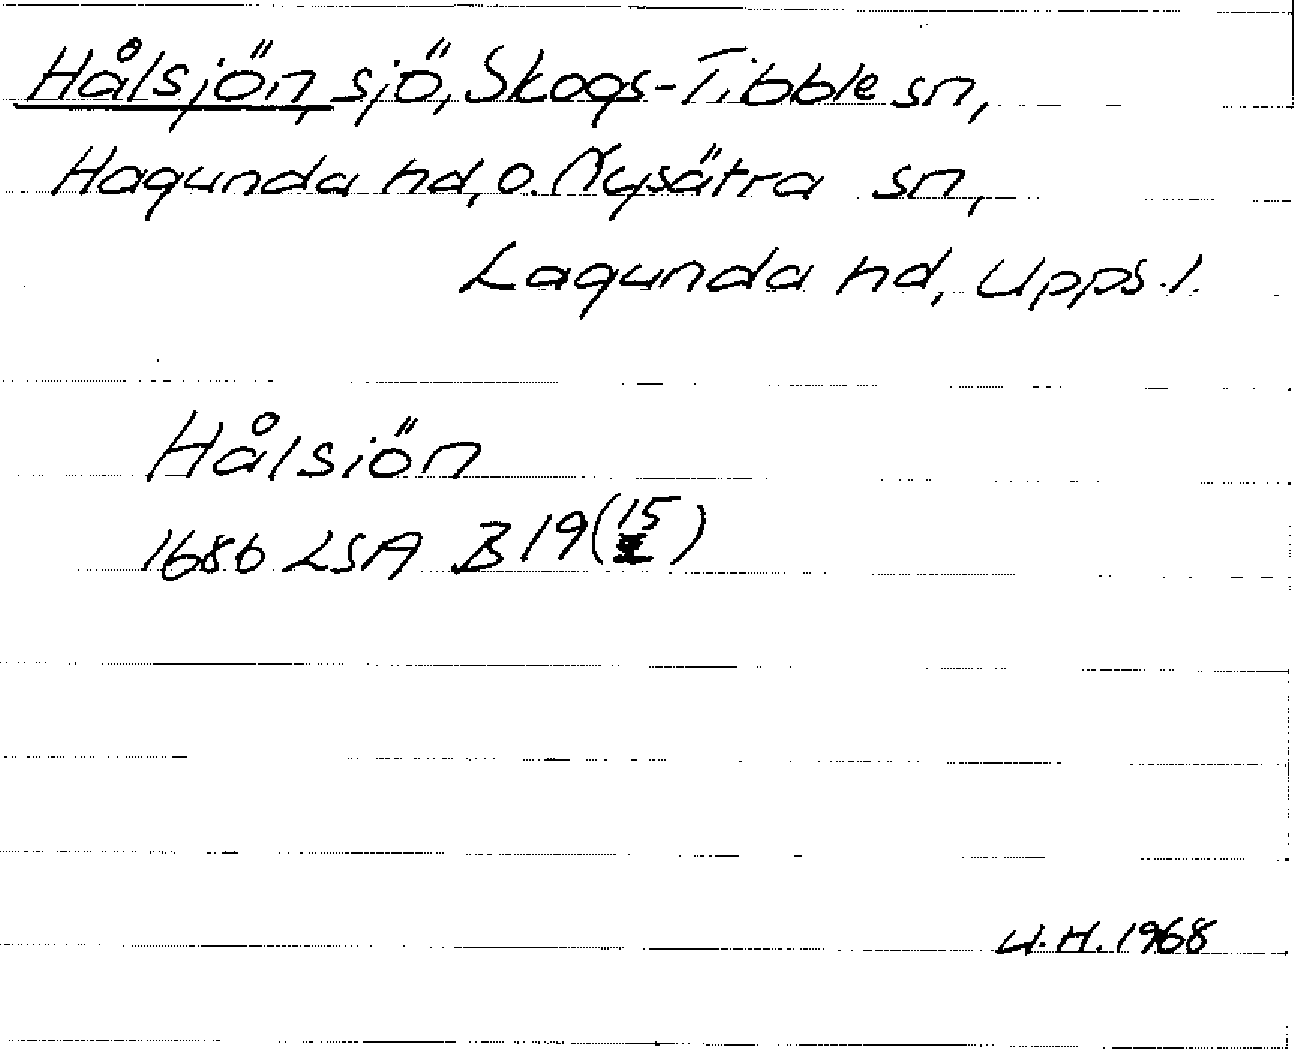 Hålsjön, sjö, Skogs-Tibble sn,
Hagunda hd, o. Nysätra sn,
Lagunda hd, Upps. l.
Hålsiön
1686 LSA B 19 (15)
U.H. 1968